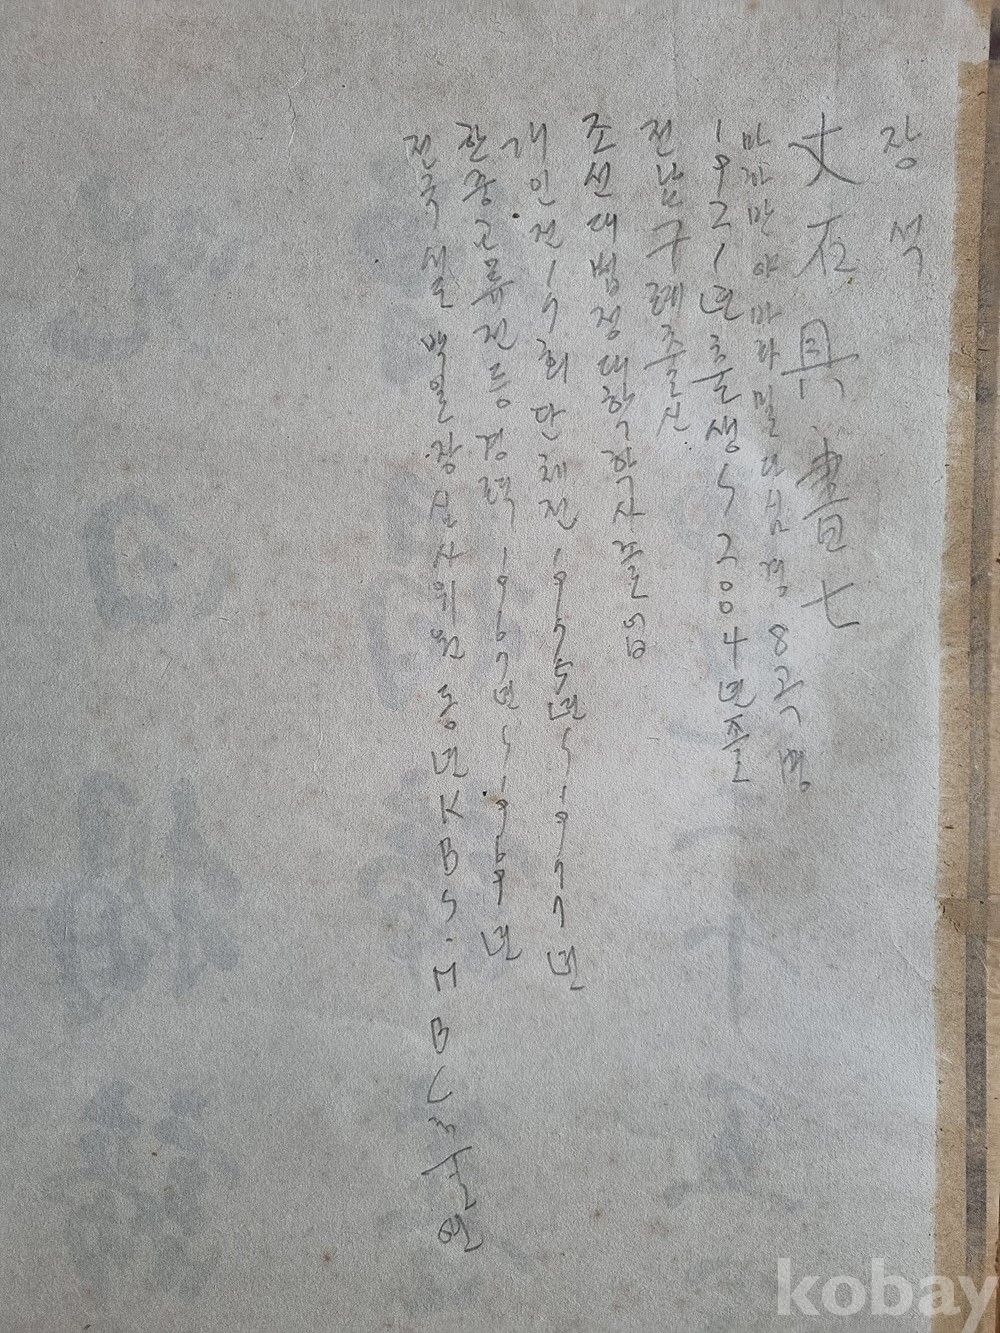 장석
丈石 具 書 七
마하반야바라밀다심경 8곡병
1921년출생~2004년졸
전남구례출신
조선대법정대학학사졸업
개인전17회단체전 1975년~1977년
한중교류전등경력 1967년~1969년
전국서도백일장심사위원 동년KBS.MBC出출연
kobay